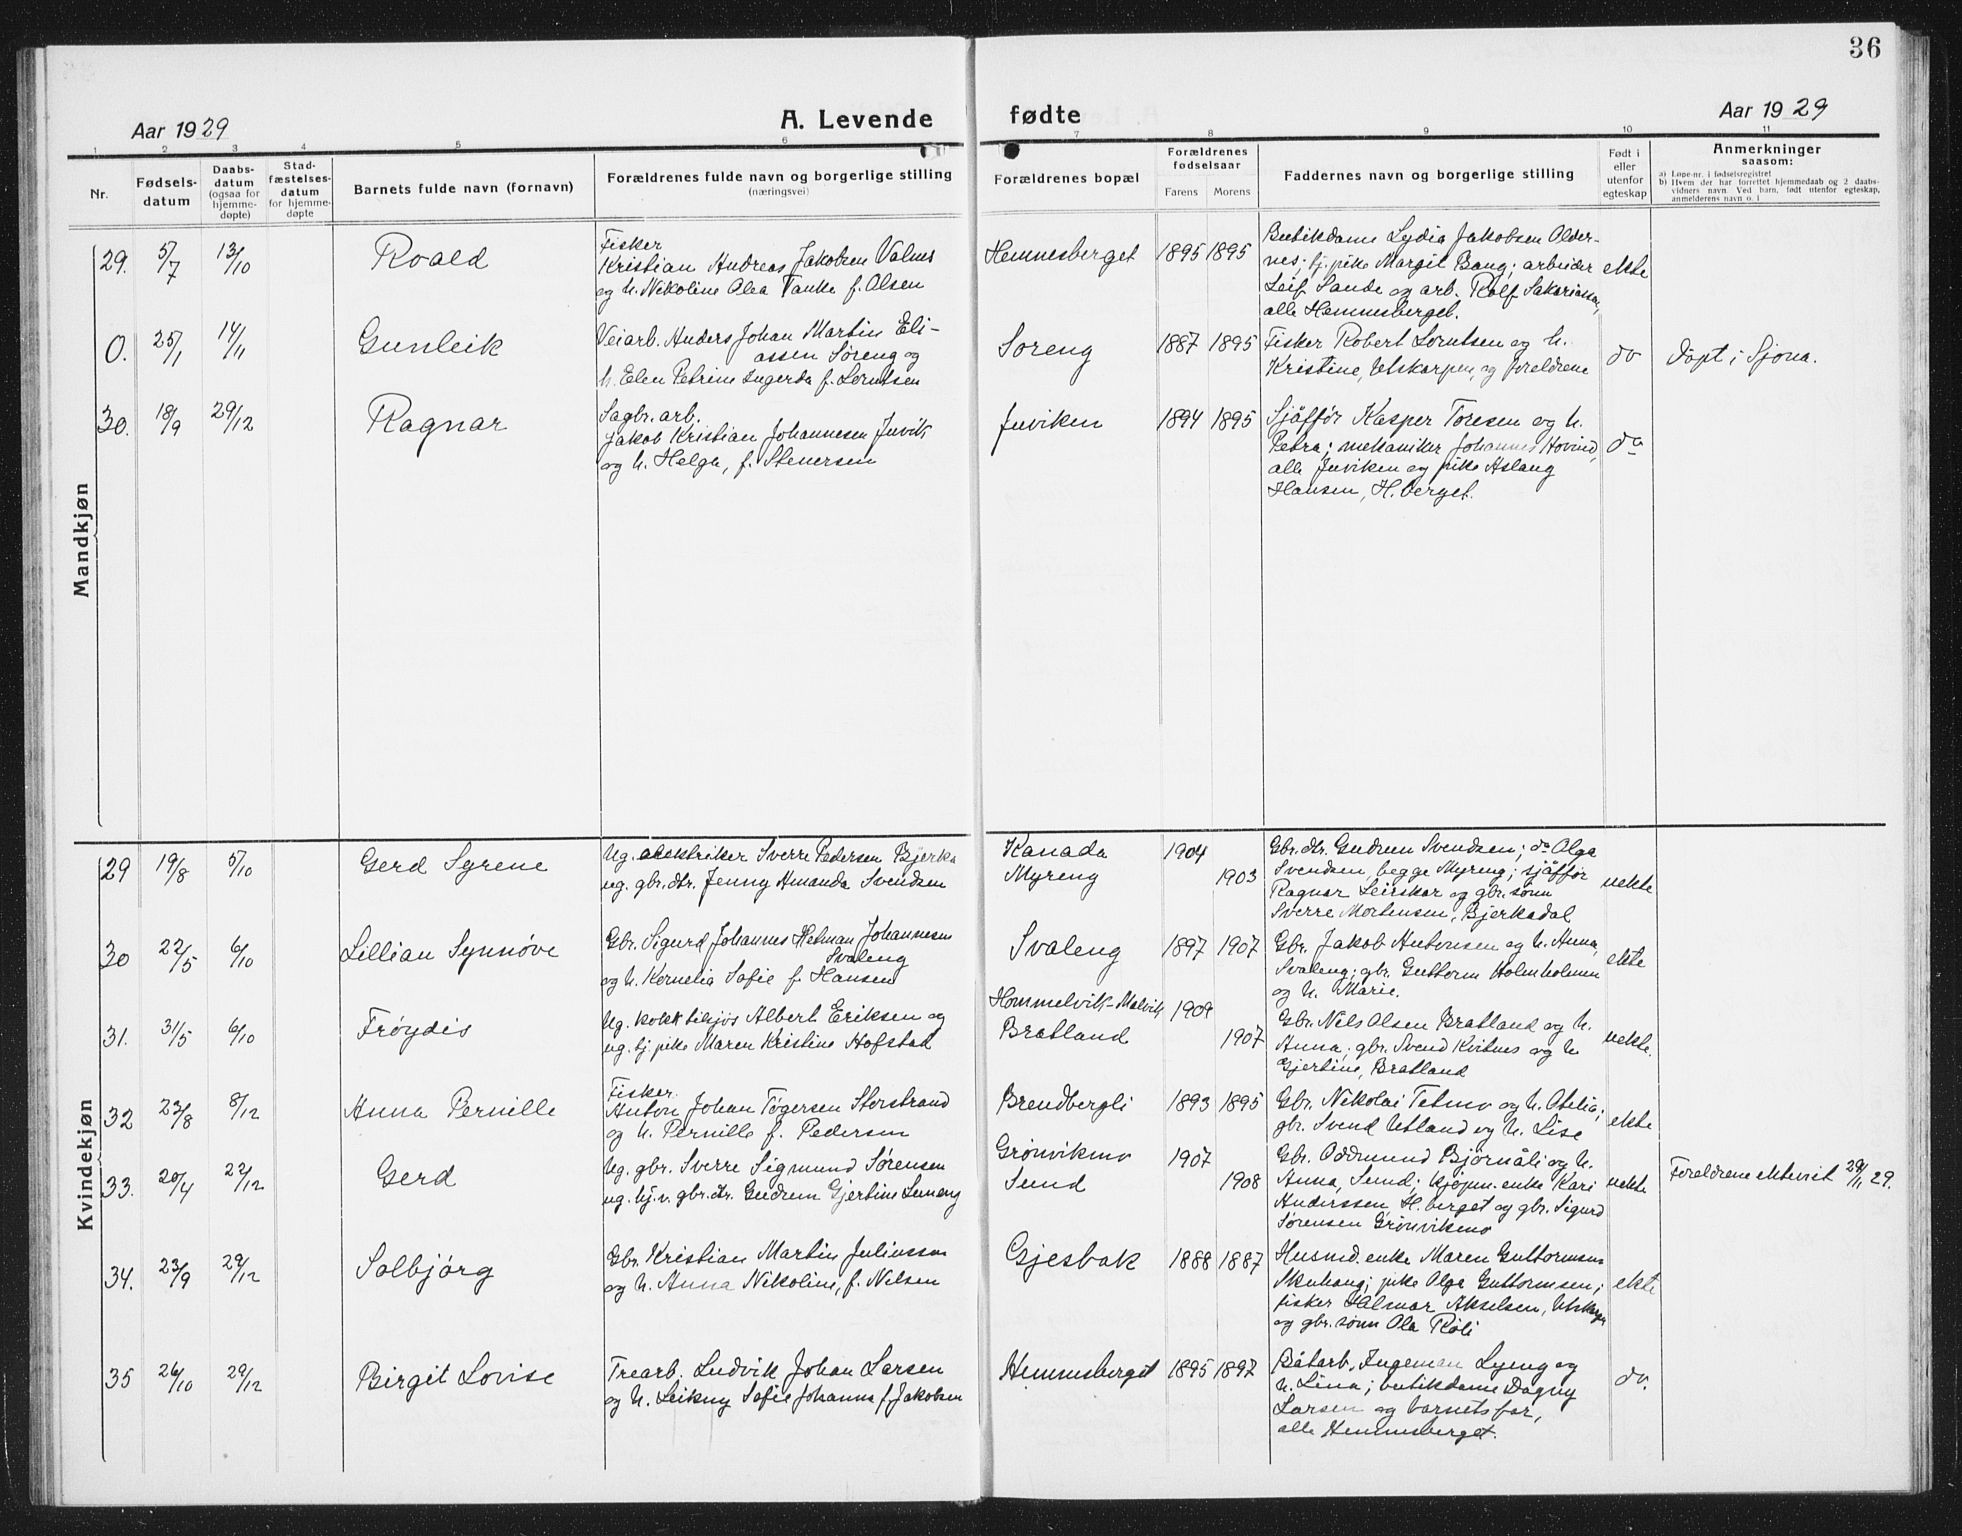 36
Aar 1929
A. Levende fødte
Aar 1929
1 2 3 4 5 6 7 8 9 10 11
Nr.
Fødsels-
datum
Daabs-
datum
(ogsaa for
hjemme-
døpte)
Stad-
fæstelses-
datum
for hjemme-
døpte
Barnets fulde navn (fornavn)
Forældrenes fulde navn og borgerlige stilling
(næringsvei)
Forældrenes bopæl
Forældrenes
fødselsaar
Farens Morens
Faddernes navn og borgerlige stilling
Født i
eller
utenfor
egteskap
Anmerkninger
saasom:
a) Løpe-nr. i fødselsregistret
b) Hvem der har forrettet hjemmedaab og 2 daabs-
vidners navn. Ved barn, født utenfor egteskap,
anmelderens navn o. l
Mandkjøn
29. 5/7 13/10 Roald
Fisker
Kristian Andreas Jakobsen Valnes
og h. Nikoline Alea Tanke f. Olsen
Hemnesberget 1895 1895
Butikdame Lydia Jakobsen Alder-
nes; hj. pike Margit Bang; arbeider
Leif Sande og arb. Rolf Sakariassen,
alle Hemnesberget.
ekte
0. 25/1 14/11 Gunleik
Veiarb. Anders Johan Martin Eli-
assen Søreng og
h. Elen Petrine Ingerda f. Lorntsen
Soreng 1887 1895
Fisker Robert Lorntsen og h.
Kristine, Utskarpen, og foreldrene
do
Døpt i Sjona.
30. 18/9 29/12 Ragnar
Sagbr. arb.
Jakob Kristian Johannesen Juvik
og h. Helga, f. Stenersen
Juviken 1894 1895
Sjåffør Kasper Toresen og h.
Petra; mekaniker Johannes Hovind,
alle Juviken og pike Aslaug
Hansen, H.berget.
do
Kvindekjøn
29 19/8 5/10 Gerd Syrene
Ug. elektriker Sverre Pedersen Bjerka
ug. gbr. dtr. Jenny Amanda Svendsen
Kanada 1904
Myreng 1903
Gbr. dtr. Gudrun Svendsen; do Olga
Svendsen, begge Myreng; sjåffør
Ragnar Leirskar og gbr. sønn
Sverre Mortensen, Bjerkadal
uekte
30 22/5 6/10 Lillian Synnøve
Gbr. Sigurd Johannes Helman Johannesen
Svaleng
og h. Kornelia Sofie f. Hansen
Svaleng 1897 1907
Gbr. Jakob Antonsen og h. Anna,
Svaleng; gbr. Guttorm Holmholmen
og h. Marie.
ekte
31. 31/5 6/10 Frøydis
Ug. Albert Eriksen og
ug. hj. pike Maren Kristine Hofstad
Hommelvik-Malvik 1904
Bratland 1907
Gbr. Nils Olsen Bratland og h.
Anna; gbr. Svend Kvitnes og h
Gjertine, Bratland
uekte.
32 23/8 8/12 Anna Pernille
Fisker
Anton Johan Tøgersen Storstrand
og h. Pernille f. Pedersen
Brendbergli 1893 1895
Gbr. Nikolai Tetmo og h. Otelia;
gbr. Svend Utland og h. Lise
ekte
33. 20/4 22/12 Gerd
Ug. gbr. Sverre Sigmund Sørensen
ug. hj. v. gbr. dtr. Gudrun Gjertine
Grønvikmo 1907
Sund 1908
Gbr. Oddmund Bjørnåli og h.
Anna, Sund; kjøpm. enke Kari
Anderssen H.berget og gbr. Sigurd
Sørensen Grønvikmo
uekte
Foreldrene ekteviet 29/11 29.
34. 23/9 29/12 Solbjørg
Gbr. Kristian Martin Juliussen
og h. Anna Nikoline, f. Nilsen
Gjesbak 1888 1887
Husmd. enke Maren Guttormsen
pike Olga Guttormsen;
fisker Hilmar Akselsen, Utskarpen
og gbr. sønn Ola Røli
ekte
35 26/10 29/12 Birgit Lovise
Trearb. Ludvik Johan Larsen
og h. Leikny Sofie Johanna f. Jakobsen
Hemnesberget 1895 1897
Båtarb. Ingeman Lyeng og
h. Lina; butikdame Dagny
Larsen og barnets far,
alle Hemnesberget.
do.